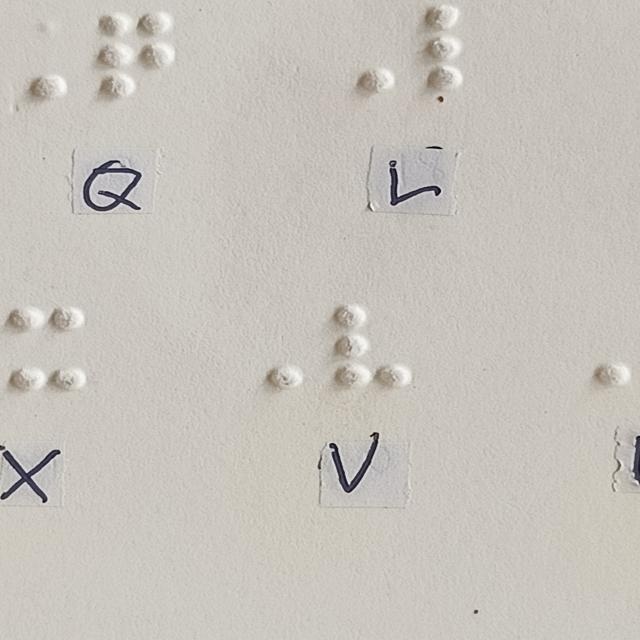 ⠠⠟ ⠠⠇
Q L
⠭ ⠠⠧ ⠠
X V